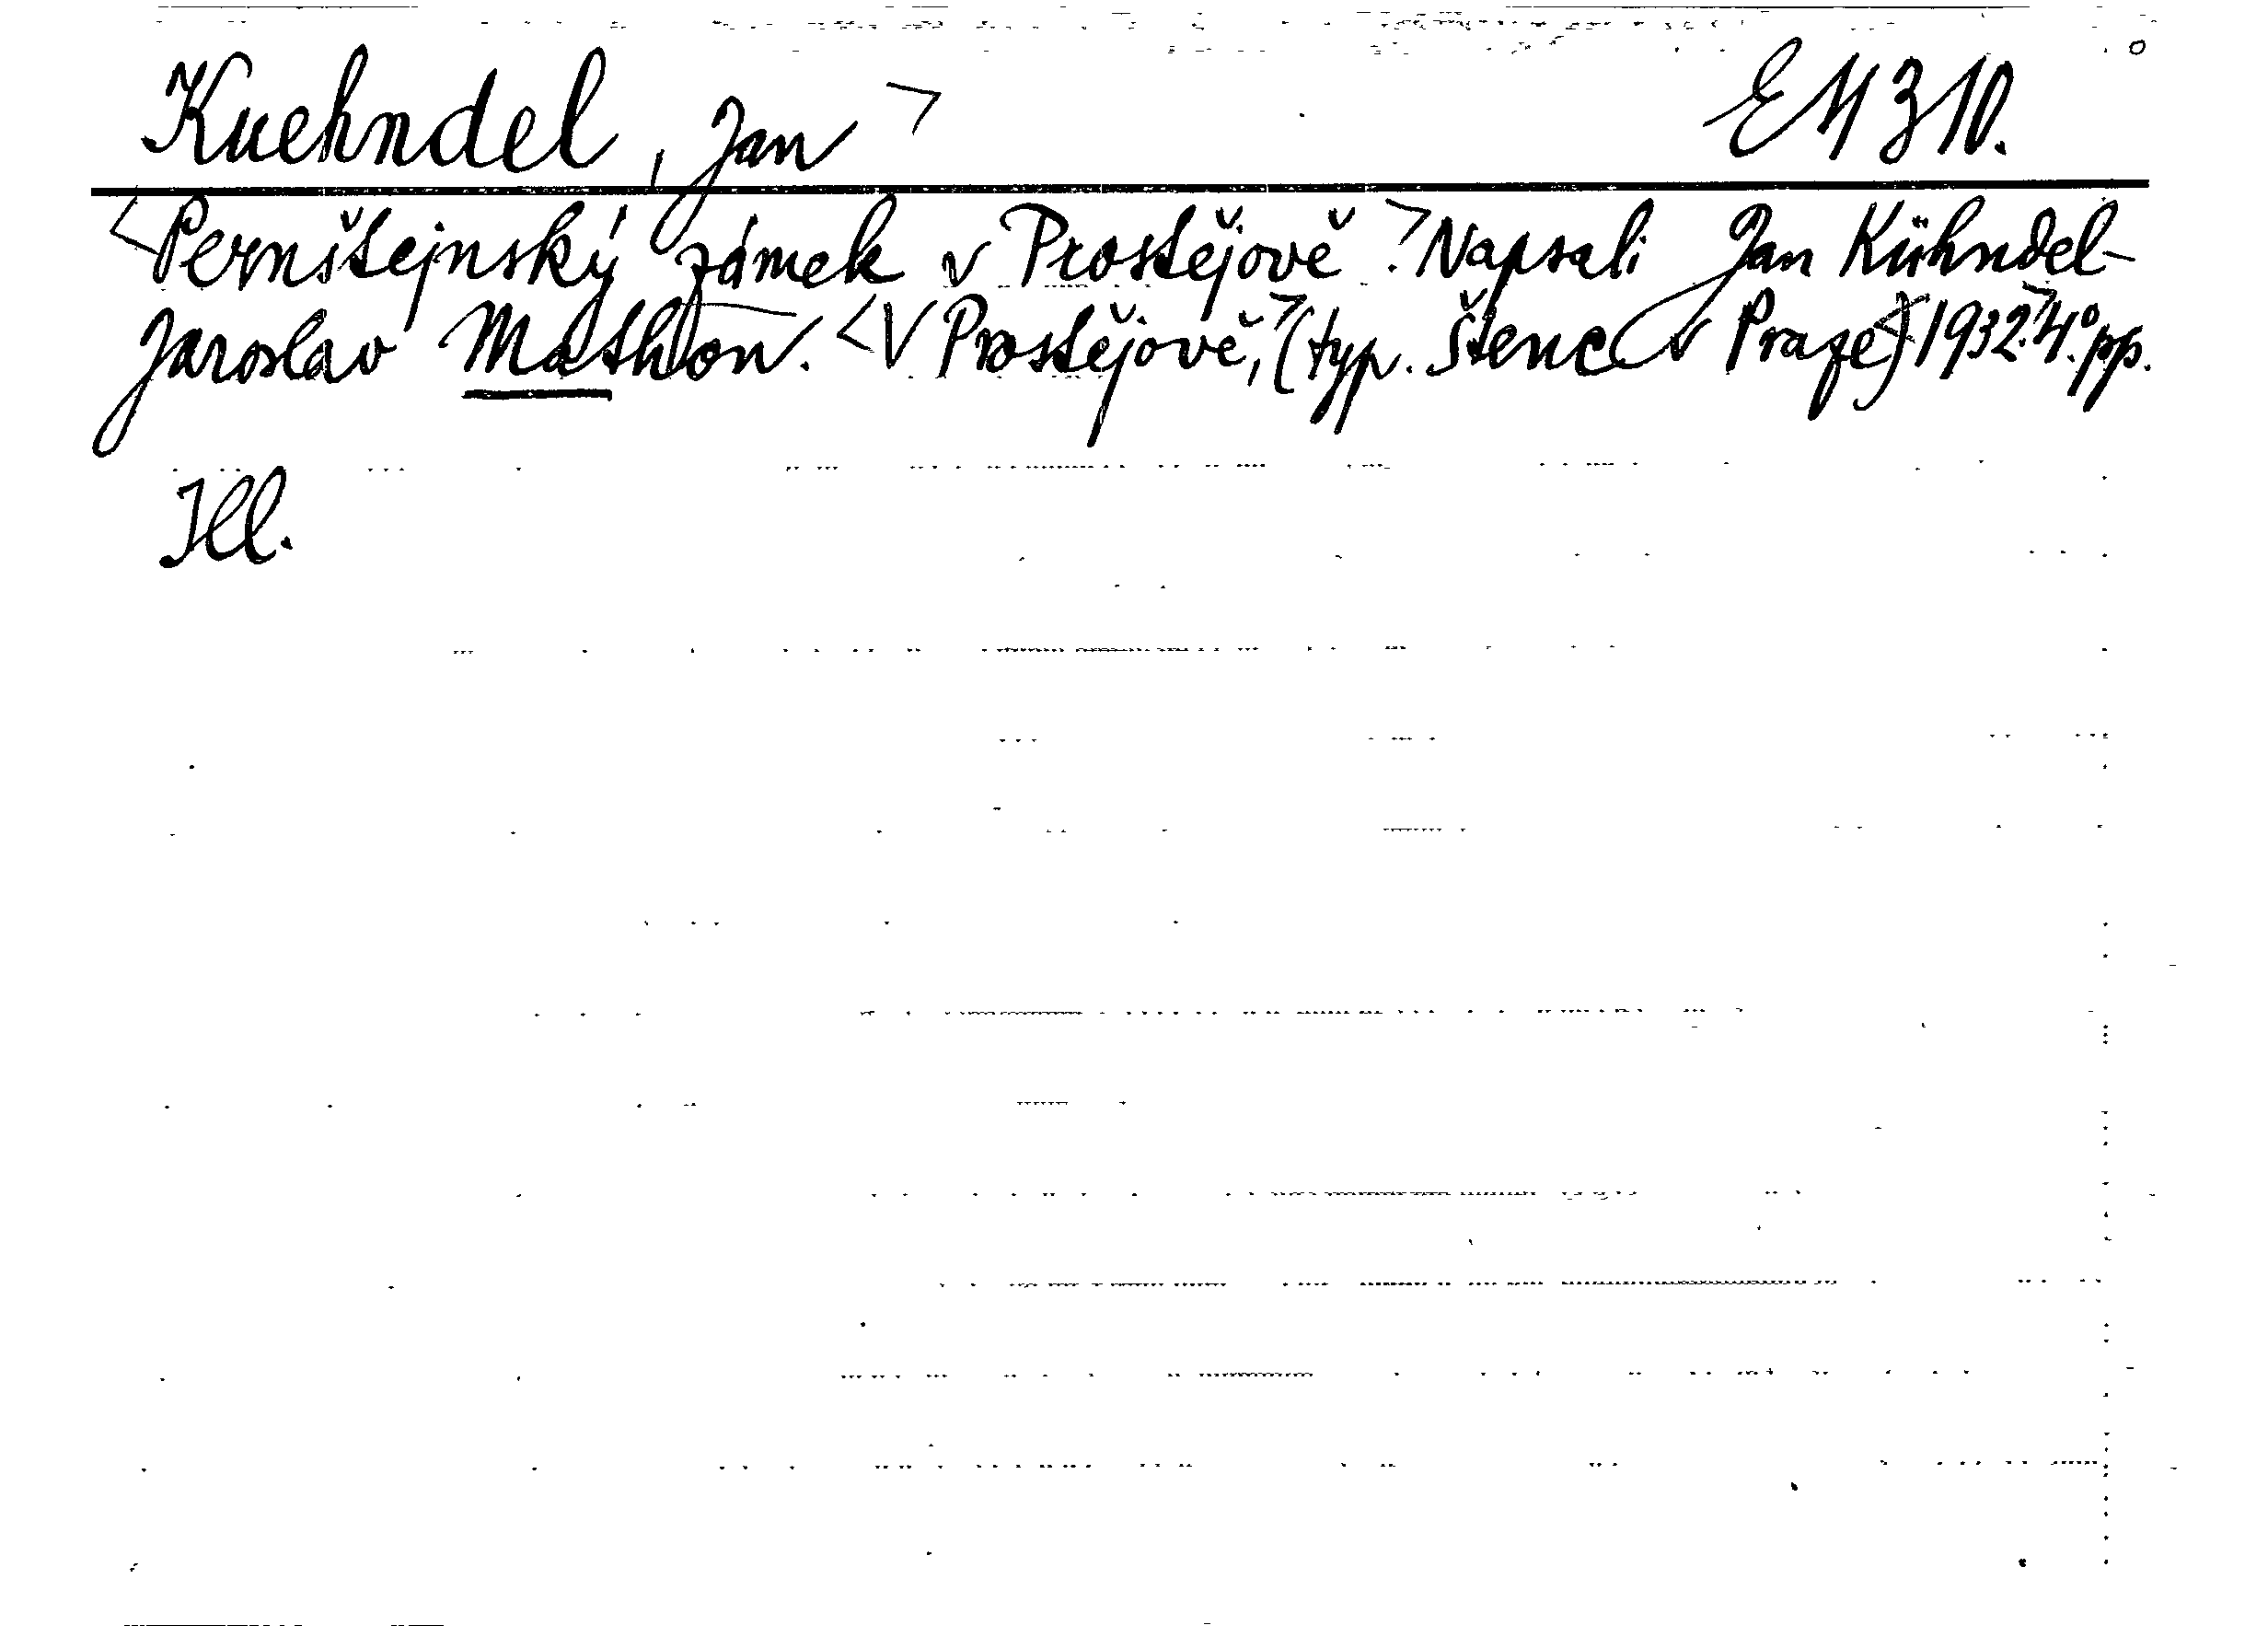 Kuehndel, Jan> EM 310.
<Pernštejnský zámek v Prostějově.> Napsali Jan Kühndel-
Jaroslav Mathon. <V Prostějově,> (typ. Štenc v Praze) <1932.> 4.° pp.
Ill.